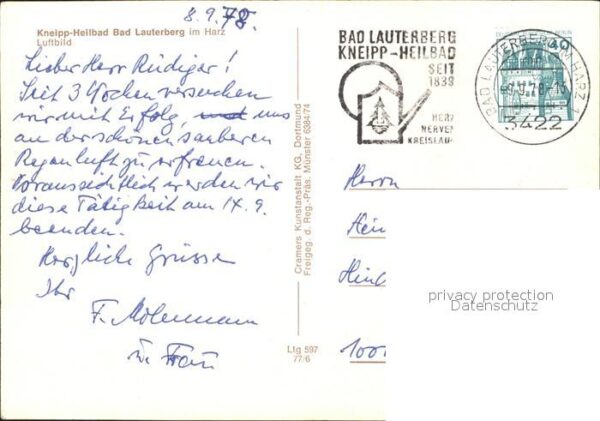 8.9.78.
Kneipp-Heilbad Bad Lauterberg im Harz
Luftbild
Lieber Herr Rüdiger!
Seit 3 Wochen versuchen
wir mit Erfolg, uns
an der schönen sauberen
Regenluft zu erfreuen.
Voraussichtlich werden wir
diese Tätigkeit am 14.9.
beenden.
Herzliche Grüsse
Ihr
F.
u. Frau
Cramers Kunstanstalt KG, Dortmund
Freigeg. d. Reg.-Präs. Münster 6384/74
Ltg 597
77/6
BAD LAUTERBERG
KNEIPP-HEILBAD
SEIT
1839
HERZ
NERVEN
KREISLAUF
BAD LAUTERBERG IM HARZ 1
3422
Herrn
Hein
Hind
1000
privacy protection
Datenschutz